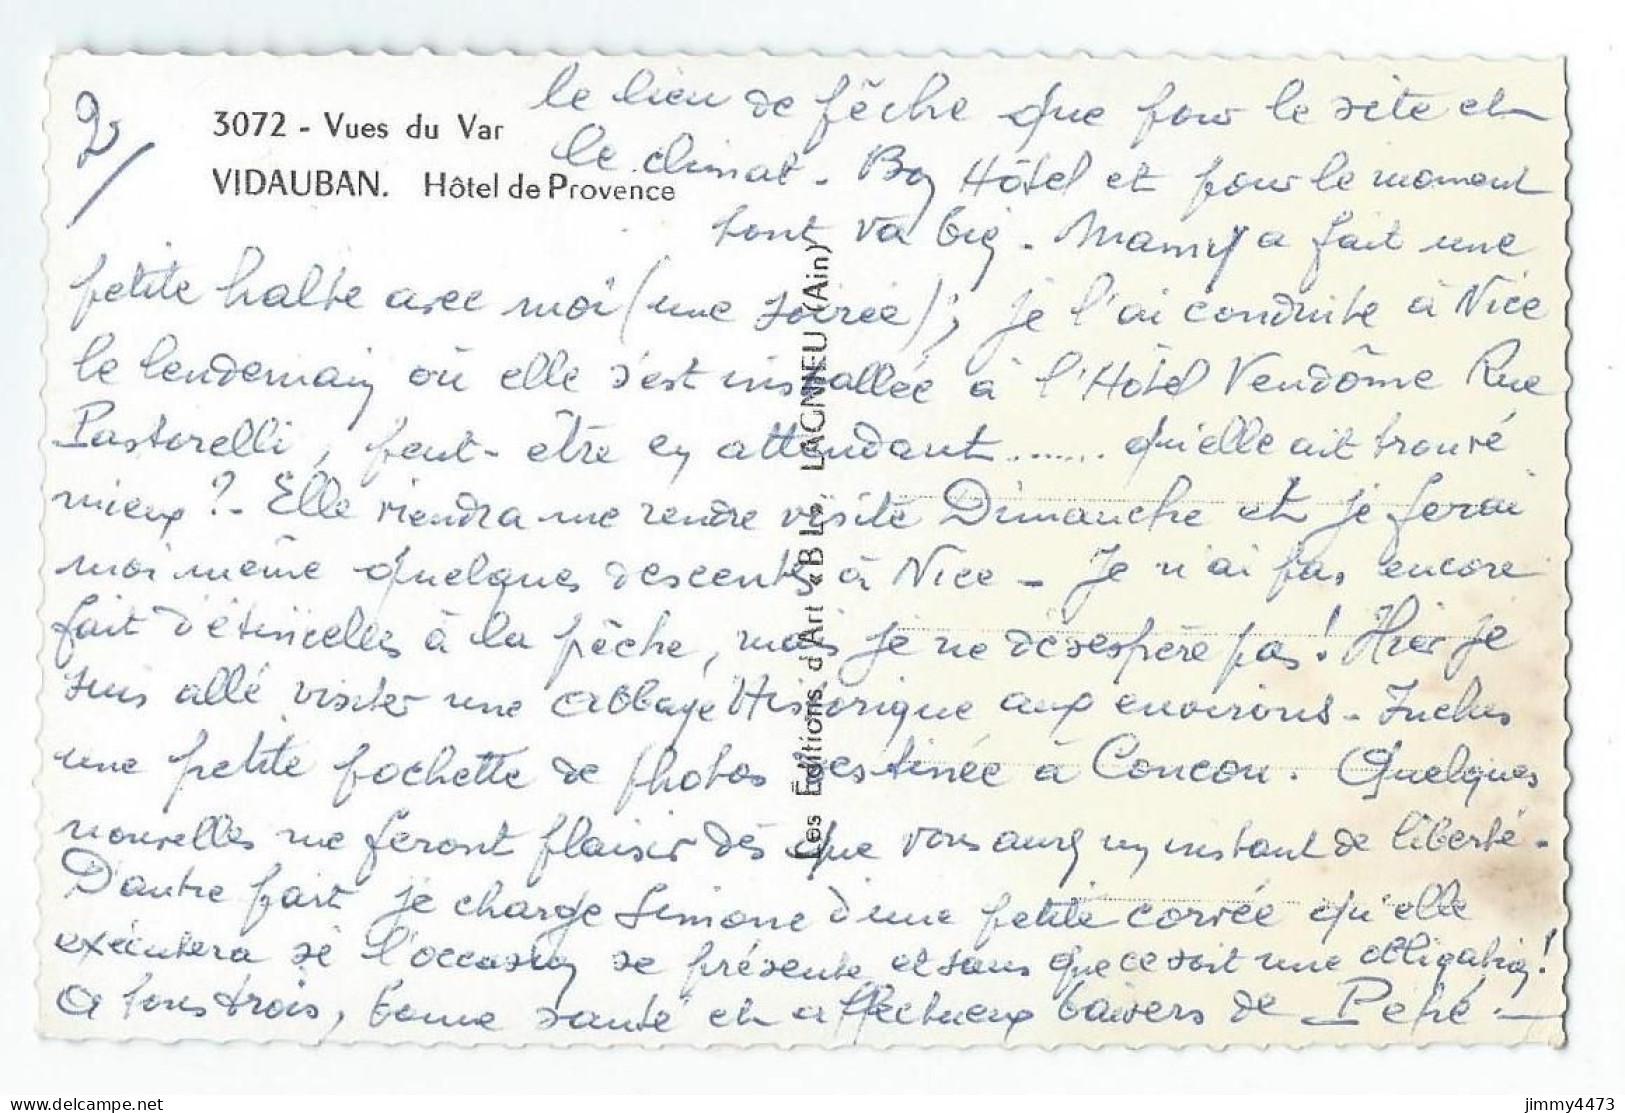 2/
3072 - Vues du Var
VIDAUBAN. Hôtel de Provence
le lieu de pêche que pour le site et
le climat. Bon Hôtel et pour le moment
tout va bien. Mamy a fait une
petite halte avec moi (une soirée), je l'ai conduite à Nice
le lendemain où elle s'est installée à l'Hôtel Vendôme Rue
Pastorelli, peut-être en attendant ....... qu'elle ait trouvé
mieux ? - Elle viendra me rendre visite Dimanche et je ferai
moi même quelques descentes à Nice - Je n'ai pas encore
fait d'étincelles à la pêche, mais je ne désespère pas ! Hier je
suis allé visiter une abbaye Historique aux environs - Inclus
une petite pochette de photos destinée à Concou. Quelques
nouvelles me feront plaisir dès que vous aurez un instant de liberté -
D'autre part je charge Simone d'une petite corvée qu'elle
exécutera si l'occasion se présente et sans que ce soit une obligation !
A tous trois, bonne santé et affectueux baisers de Pépé -
Les Editions d'Art « BL », LAGNIEU (Ain)
jimmy4473